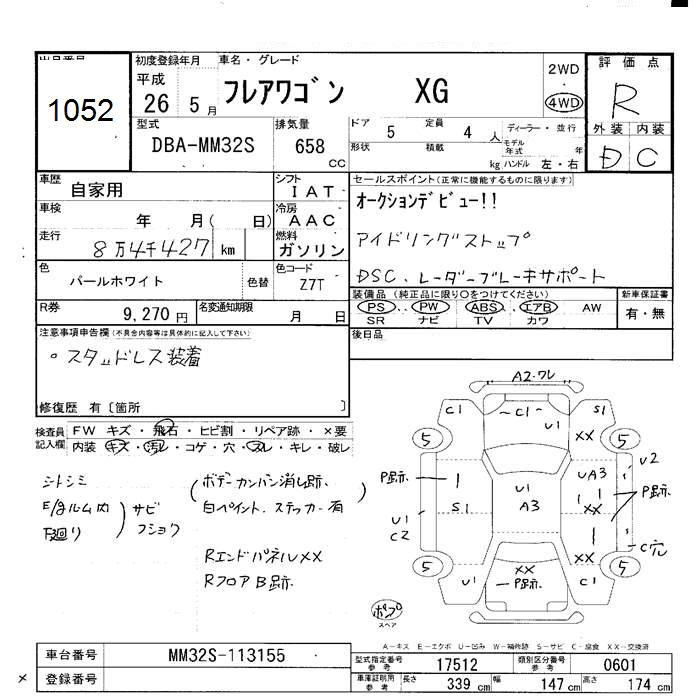 出品番号
1052
初度登録年月
平成
26 5月
車名・グレード
フレアワゴン XG
2WD
・
4WD
評価点
R
外装 内装
D C
型式
DBA-MM32S
排気量
658
CC
ドア 5 定員 4 人
ディーラー・並行
形状 積載 kg
モデル年式 年
ハンドル 左・右
車歴
自家用
シフト
IAT
車検
年 月( 日)
冷房
AAC
走行
8万4千427 km
燃料
ガソリン
色
パールホワイト
色替
色コード
Z7T
R券
9,270円
名変通知期限
月 日
セールスポイント(正常に機能するものに限ります)
オークションデビュー!!
アイドリングストップ
DSC、レーダーブレーキサポート
装備品(純正品に限り○をつけてください)
PS、PW、ABS、エアB AW
SR ナビ TV カワ
新車保証書
有・無
後日品
注意事項申告欄(不具合内容等は具体的に記入して下さい)
。スタッドレス装着
修復歴 有〔箇所 〕
検査員記入欄
FW キズ・飛石・ヒビ割・リペア跡・×要
内装 キズ・汚レ・コゲ・穴・スレ・キレ・破レ
シートシミ
E/gルーム内
下廻り
サビ
フショク
(ボデーカンバン消し跡、
白ペイント、ステッカー有)
RエンドパネルXX
RフロアB跡
A2・ワレ
C1 C1 S1
U1 XX
5 5
P跡 S1 U1 A3 UA3 U2
U1 C2 XX P跡
C穴
XX
5 5
U1 XX P跡 C1
ポンプ
スペア
A-キズ E-エクボ U-凹み W-補修跡 S-サビ C-腐食 XX-交換済
車台番号 MM32S-113155
登録番号
型式指定番号
参考
17512
類別区分番号
参考
0601
車庫証明用
参考
長さ 339 cm 幅 147 cm 高さ 174 cm